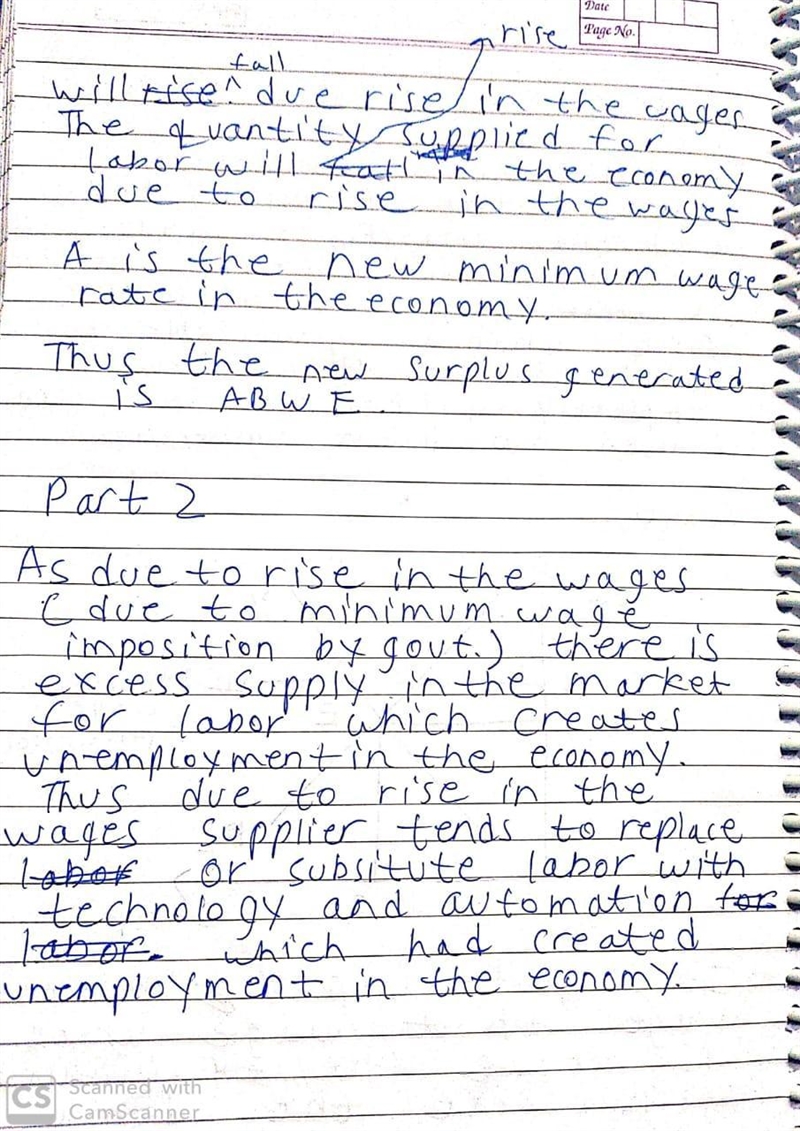 Date
Page No.
rise
fall
will rise ^ due rise in the wages
The quantity supplied for
labor will fall in the economy
due to rise in the wages
A is the new minimum wage
rate in the economy.
Thus the new surplus generated
is ABWE.
Part 2
As due to rise in the wages
(due to minimum wage
imposition by govt.) there is
excess supply in the market
for labor which creates
unemployment in the economy.
Thus due to rise in the
wages supplier tends to replace
labor or subsitute labor with
technology and automation for
labor. which had created
unemployment in the economy.
CS Scanned with
CamScanner